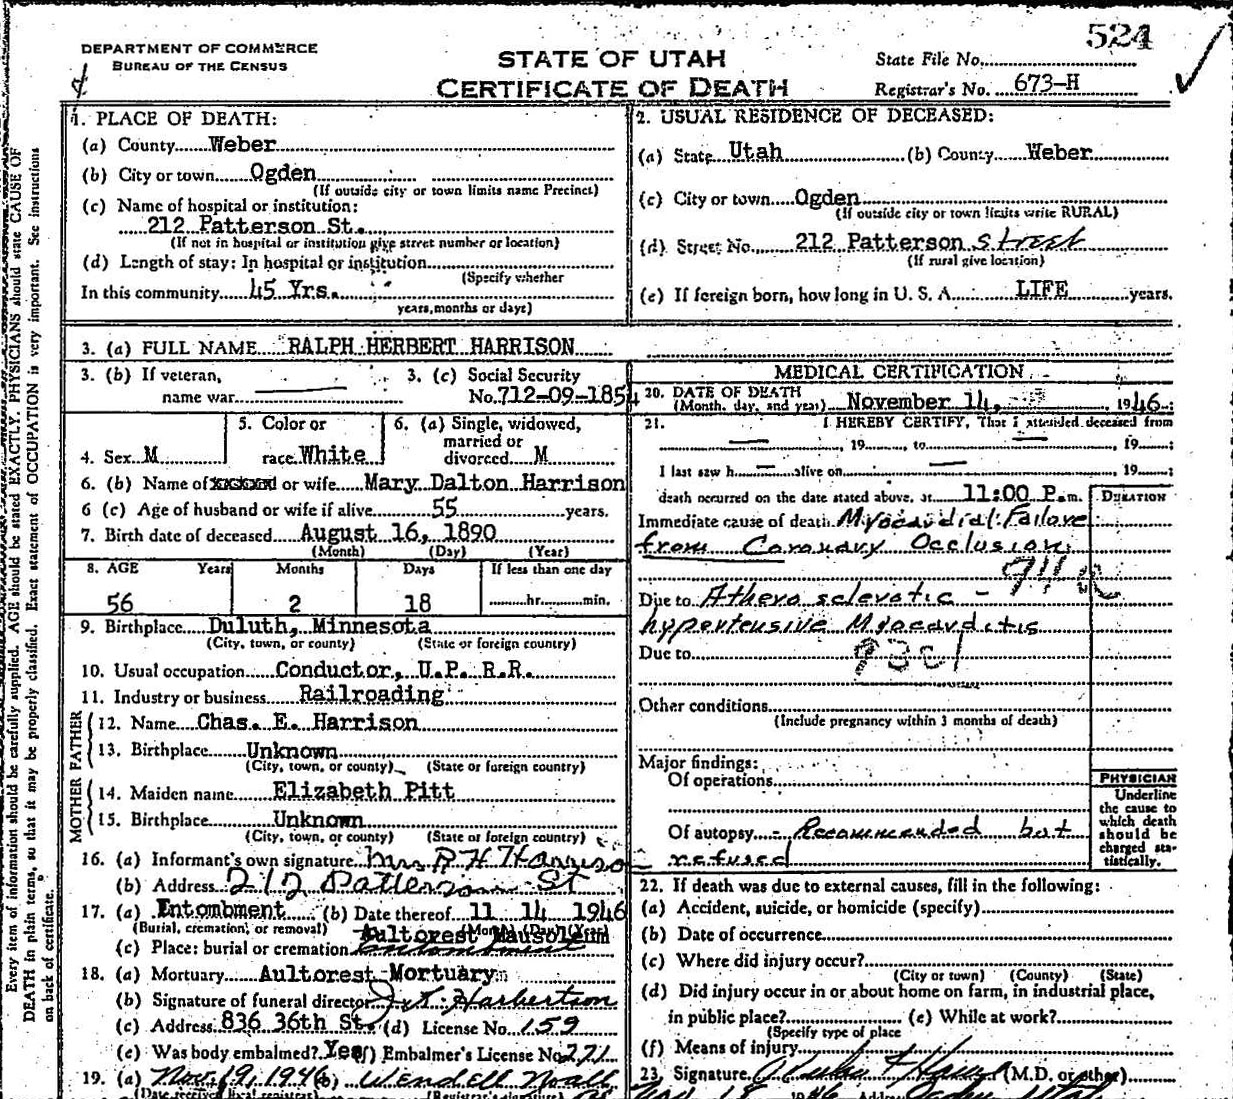 524
DEPARTMENT OF COMMERCE
BUREAU OF THE CENSUS
STATE OF UTAH
CERTIFICATE OF DEATH
State File No.
Registrar's No. 673-H
Every item of information should be carefully supplied. AGE should be stated EXACTLY. PHYSICIANS should state CAUSE OF
DEATH in plain terms, so that it may be properly classified. Exact statement of OCCUPATION is very important. See instructions
on back of certificate.
1. PLACE OF DEATH:
(a) County Weber
(b) City or town Ogden
(If outside city or town limits name Precinct)
(c) Name of hospital or institution:
212 Patterson St.
(If not in hospital or institution give street number or location)
(d) Length of stay: In hospital or institution
(Specify whether
In this community 45 Yrs.
years, months or days)
2. USUAL RESIDENCE OF DECEASED:
(a) State Utah (b) County Weber
(c) City or town Ogden
(If outside city or town limits write RURAL)
(d) Street No. 212 Patterson Street
(If rural give location)
(e) If foreign born, how long in U. S. A. LIFE years.
3. (a) FULL NAME RALPH HERBERT HARRISON
3. (b) If veteran,
name war
3. (c) Social Security
No. 712-09-1854
4. Sex M
5. Color or
race White
6. (a) Single, widowed,
married or
divorced M
6. (b) Name of or wife Mary Dalton Harrison
6 (c) Age of husband or wife if alive 55 years.
7. Birth date of deceased August 16, 1890
(Month) (Day) (Year)
8. AGE Years Months Days If less than one day
56 2 18 hr. min.
9. Birthplace Duluth, Minnesota
(City, town, or county) (State or foreign country)
10. Usual occupation Conductor, U.P. R.R.
11. Industry or business Railroading
FATHER
12. Name Chas. E. Harrison
13. Birthplace Unknown
(City, town, or county) (State or foreign country)
MOTHER
14. Maiden name Elizabeth Pitt
15. Birthplace Unknown
(City, town, or county) (State or foreign country)
16. (a) Informant's own signature Mrs R H Harrison
(b) Address 212 Patterson St
17. (a) Entombment (b) Date thereof 11 14 1946
(Burial, cremation, or removal) (Month) (Day) (Year)
Aultorest Mausoleum
(c) Place: burial or cremation Entombment
18. (a) Mortuary Aultorest Mortuary
(b) Signature of funeral director Harbertson
(c) Address 836 36th St. (d) License No. 159
(e) Was body embalmed? Yes (f) Embalmer's License No. 271
19. (a) Nov. 19, 1946 (b) Wendell Noall
(Date received local registrar) (Registrar's signature)
MEDICAL CERTIFICATION
20. DATE OF DEATH
(Month, day, and year) November 14, 1946
21. I HEREBY CERTIFY, That I attended deceased from
, 19 , to , 19 ;
I last saw h alive on , 19 ;
death occurred on the date stated above, at 11:00 P.m.
DURATION
Immediate cause of death Myocardial Failure
from Coronary Occlusion
Due to Atherosclerotic -
hypertensive Myocarditis
Due to
Other conditions
(Include pregnancy within 3 months of death)
Major findings:
Of operations
Of autopsy - Recommended but
refused
PHYSICIAN
Underline
the cause to
which death
should be
charged sta-
tistically.
22. If death was due to external causes, fill in the following:
(a) Accident, suicide, or homicide (specify)
(b) Date of occurrence
(c) Where did injury occur?
(City or town) (County) (State)
(d) Did injury occur in or about home on farm, in industrial place,
in public place? (e) While at work?
(Specify type of place
(f) Means of injury
23. Signature (M.D. or other)